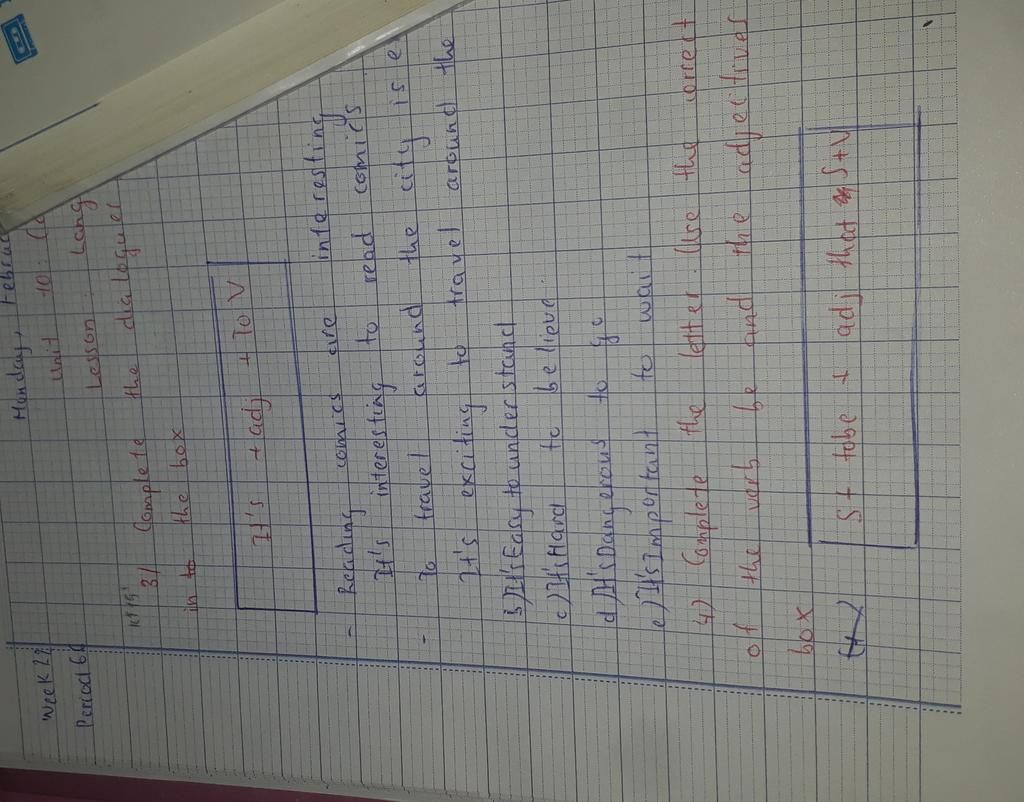 Monday, Februa
Week 22
Unit 10: 
Period 6
Lesson: Lang
KTBT
3/ Complete the dialogues
in to the box
It's + adj + To V
- Reading comics are interesting
It's interesting to read comics
- To travel around the city is e
It's exciting to travel around the
b) It's Easy to understand
c) It's Hard to believe.
d) It's Dangerous to go
e) It's Important to wait
4) Complete the letter. Use the correct
of the verb be and the adjectives
box
S + tobe + adj that S+V